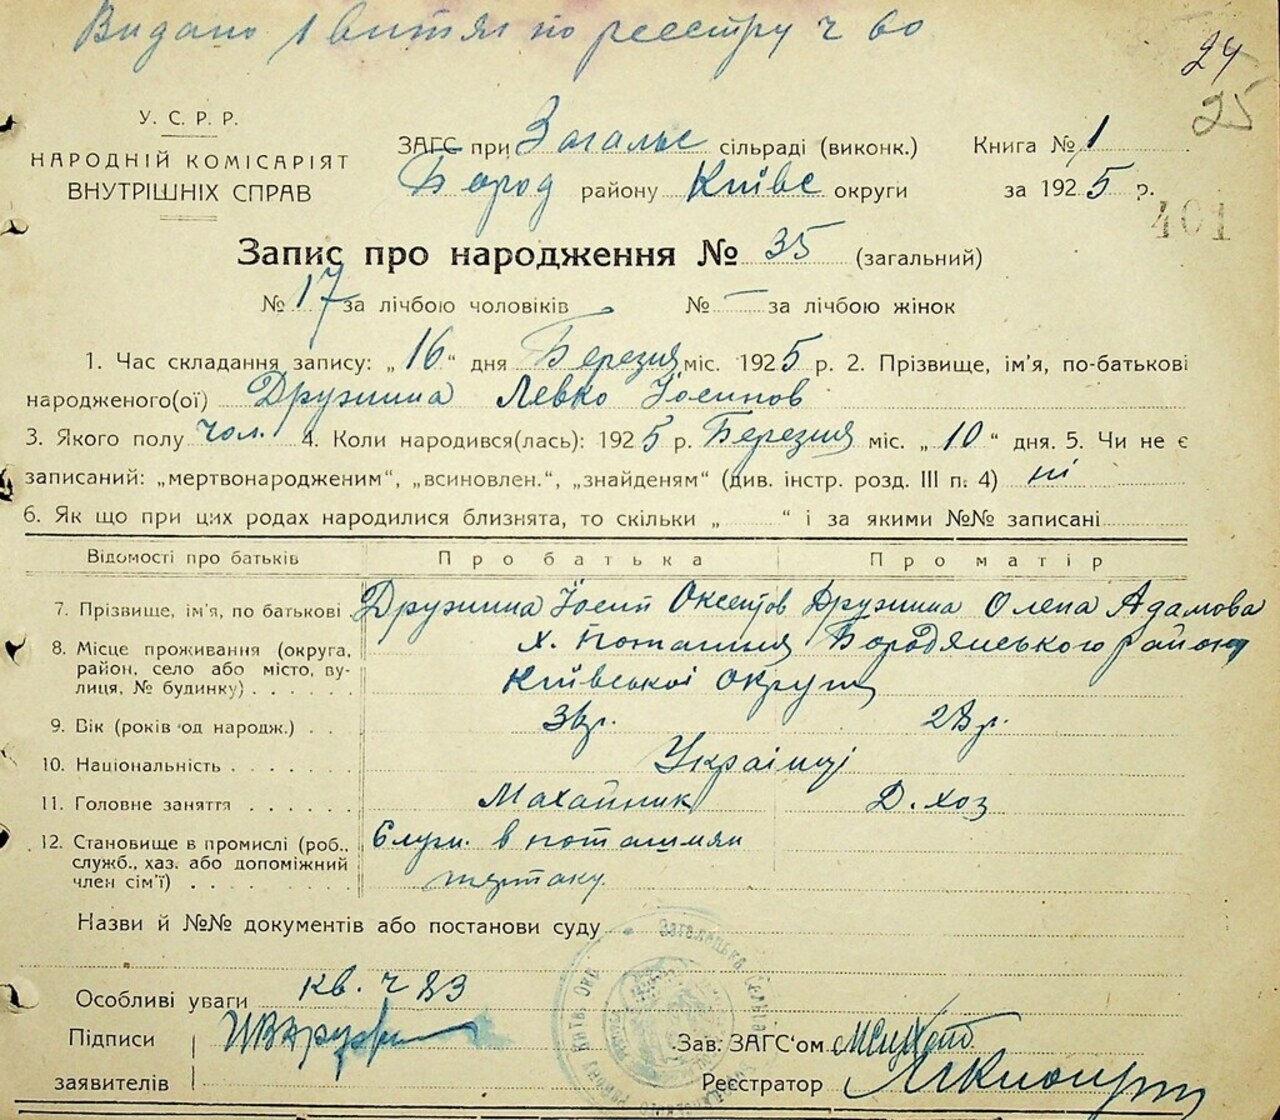 Видано 1 витяг по реєстру ч 60
24
25
У. С. Р. Р.
НАРОДНІЙ КОМІСАРІЯТ
ВНУТРІШНІХ СПРАВ
ЗАГС при Загальс сільраді (виконк.) Книга № 1
Бород району Київс округи за 1925 р.
401
Запис про народження № 35 (загальний)
№ 17 за лічбою чоловіків № — за лічбою жінок
1. Час складання запису: „16“ дня Березня міс. 1925 р. 2. Прізвище, ім'я, по-батькові
народженого(ої) Дружина Левко Йосипов
3. Якого полу чол. 4. Коли народився(лась): 1925 р. Березня міс. „10“ дня. 5. Чи не є
записаний: „мертвонародженим“, „всиновлен.“, „знайденям“ (див. інстр. розд. III п. 4) ні
6. Як що при цих родах народилися близнята, то скільки „ “ і за якими №№ записані
Відомості про батьків Про батька Про матір
7. Прізвище, ім'я, по батькові Дружина Йосип Оксентов Дружина Олена Адамова
8. Місце проживання (округа, х. Поташня Бородянського району
район, село або місто, ву- Київської округи
лиця, № будинку)
9. Вік (років од народж.) 28 р.
10. Національність Українці
11. Головне заняття Махайник Д. хоз
12. Становище в промислі (роб., Служ. в поташнян
служб., хаз. або допоміжний
член сім'ї) тартаку.
Назви й №№ документів або постанови суду
Особливі уваги кв. ч 83
Підписи
Зав. ЗАГС'ом
заявителів
Реєстратор